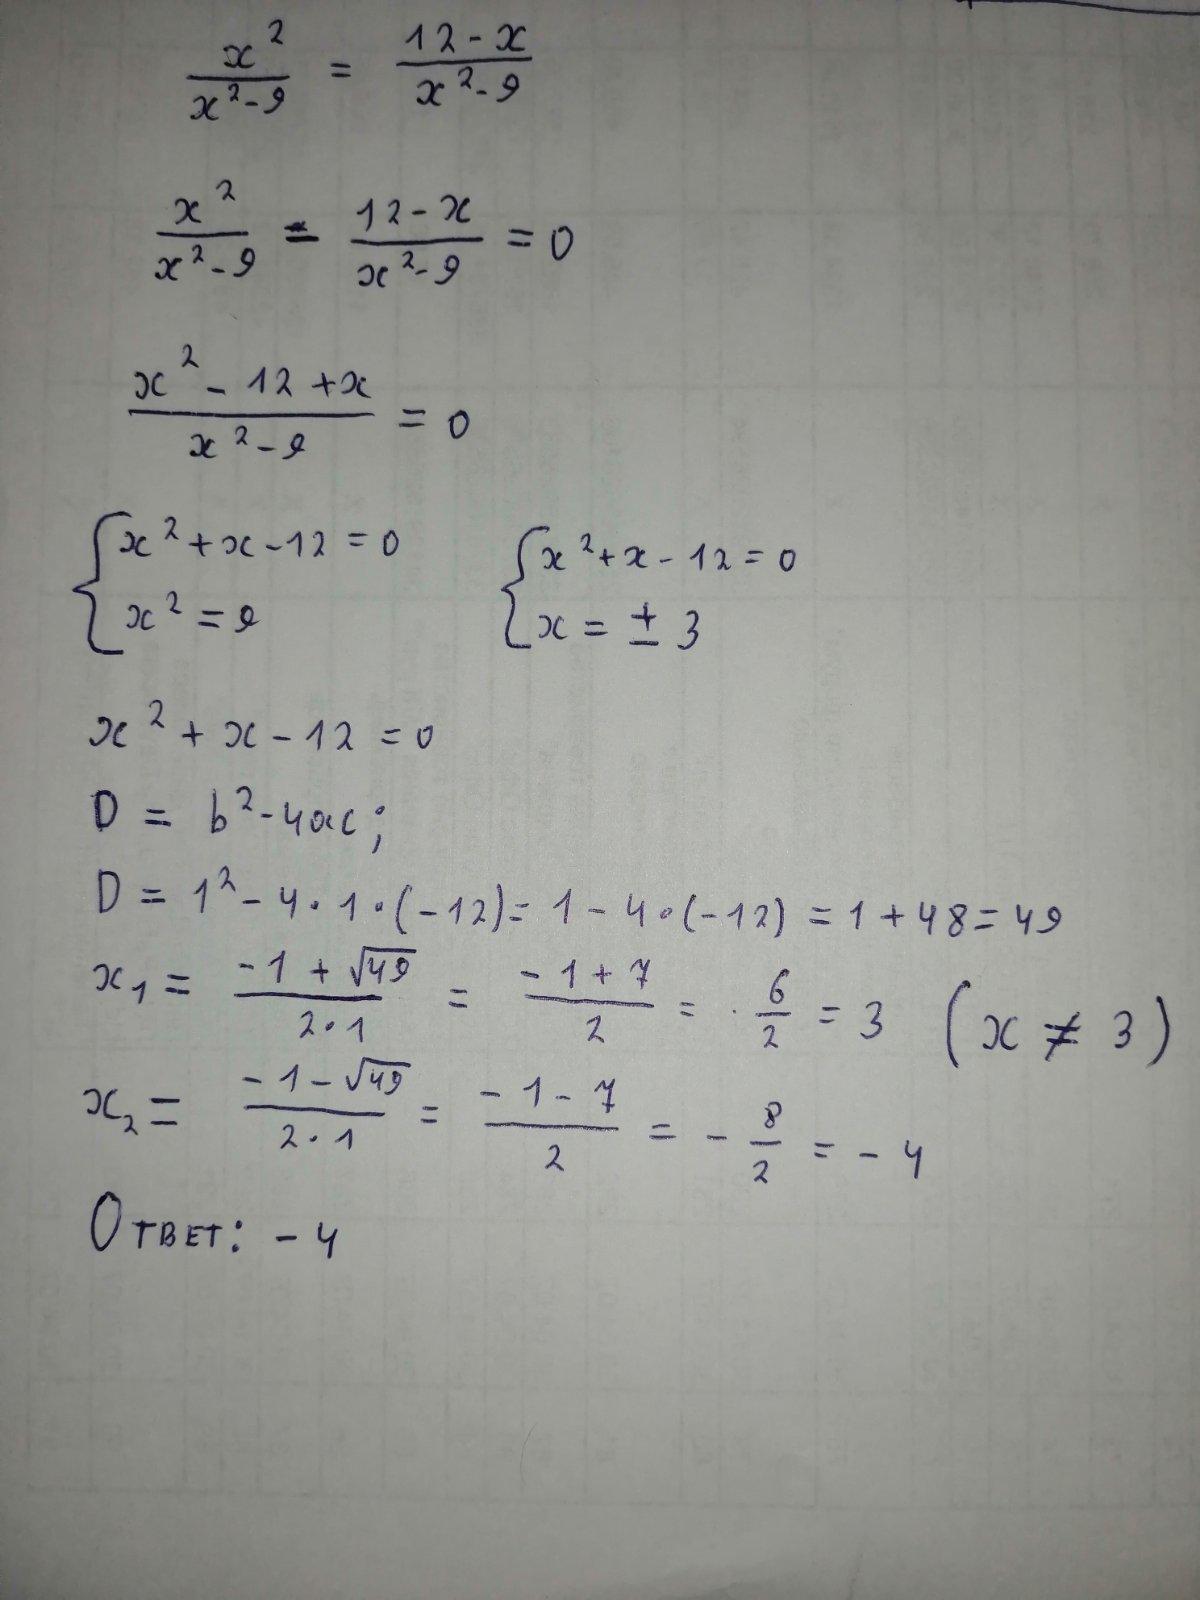 x²/(x²-9) = (12-x)/(x²-9)
x²/(x²-9) - (12-x)/(x²-9) = 0
(x²-12+x)/(x²-9) = 0
{x²+x-12=0 {x²+x-12=0
x²=9 x=±3
x²+x-12=0
D = b²-4ac;
D = 1²-4·1·(-12)=1-4·(-12)=1+48=49
x₁ = (-1+√49)/(2·1) = (-1+7)/2 = 6/2 = 3 (x≠3)
x₂ = (-1-√49)/(2·1) = (-1-7)/2 = -8/2 = -4
Ответ: -4